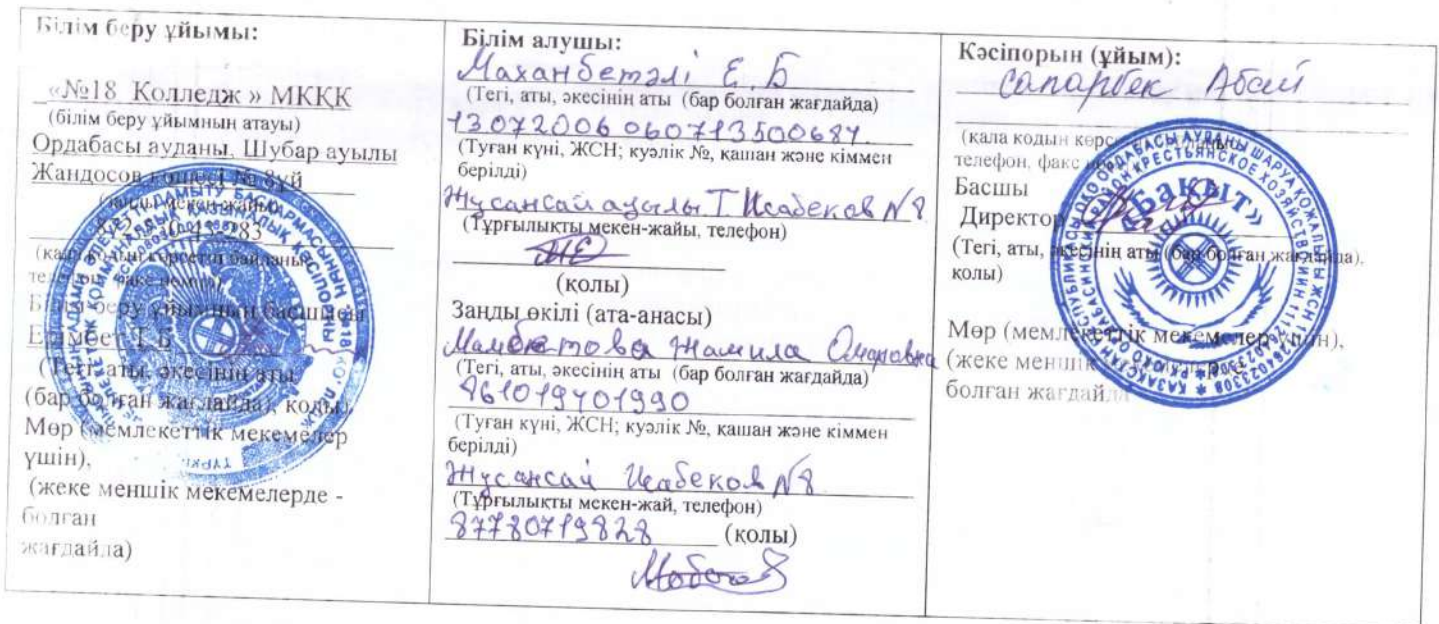 Білім беру ұйымы:
«№18 Колледж » МКҚК
(білім беру ұйымнын атауы)
Ордабасы ауданы, Шубар ауылы
Жандосов көшесі № 8үй
(заңды мекен-жайы)
(қала кодын көрсетіп байланыс
телефон, факс номері)
Білім беру ұйымнын басшысы
Ерімбет Т.Б
(Тегі, аты, әкесінің аты
(бар болған жағдайда), қолы)
Мөр (мемлекеттік мекемелер
үшін),
(жеке меншік мекемелерде -
болған
жағдайда)
Білім алушы:
Маханбетәлі Е.Б
(Тегі, аты, әкесінің аты (бар болған жағдайда)
13072006 060713500687.
(Туған күні, ЖСН; куәлік №, қашан және кіммен
берілді)
Жусансай ауылы Т Исабеков №8
(Тұрғылықты мекен-жайы, телефон)
(қолы)
Заңды өкілі (ата-анасы)
Мамбетова Жамила Омаровна
(Тегі, аты, әкесінің аты (бар болған жағдайда)
861019401990
(Туған күні, ЖСН; куәлік №, қашан және кіммен
берілді)
Жусансай Исабеков №8
(Тұрғылықты мекен-жай, телефон)
87780719828 (қолы)
Кәсіпорын (ұйым):
Сапарбек Абай
(қала кодын көрс
телефон, факс
Басшы
Директор
(Тегі, аты, әкесінің аты (бар болған жағдайда),
қолы)
Мөр (мемлекеттік мекемелер үшін),
(жеке меншік
болған жағдайда
«Бақыт»